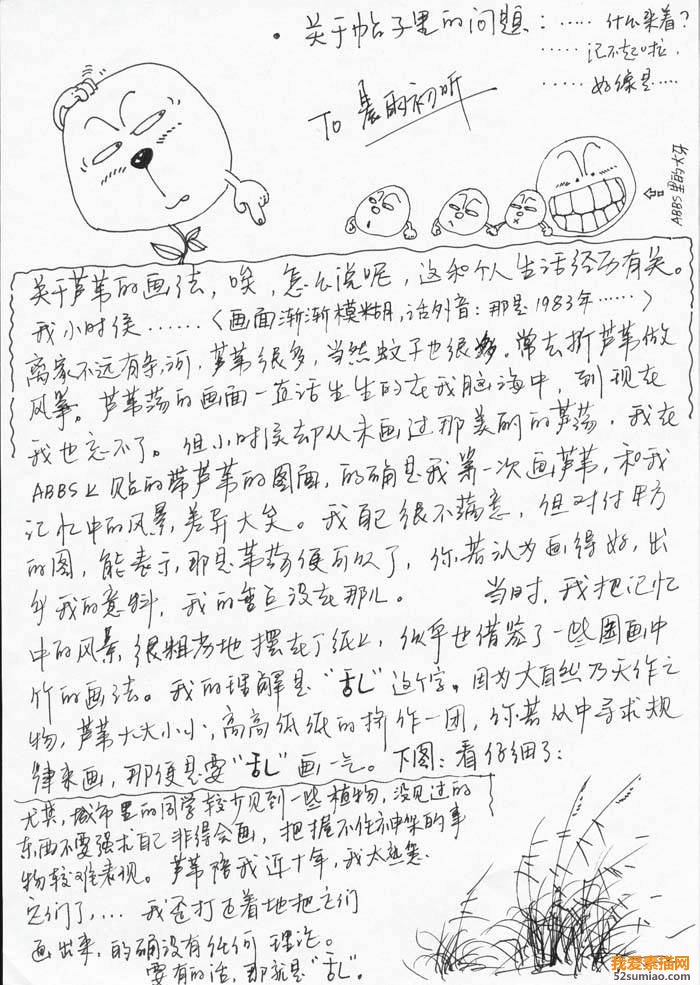 • 关于帖子里的问题：…… 什么来着？
…… 记不起啦，
…… 好像是……
To 晨雨初听
ABBS里的大牙
关于芦苇的画法，唉，怎么说呢，这和个人生活经历有关。
我小时侯……〈画面渐渐模糊，话外音：那是1983年……〉
离家不远有条河，芦苇很多，当然蚊子也很多。常去折芦苇做
风筝。芦苇荡的画面一直活生生的在我脑海中，到现在
我也忘不了。但小时侯却从未画过那美丽的芦荡，我在
ABBS上贴的带芦苇的图画，的确是我第一次画芦苇，和我
记忆中的风景，差异大矣。我自己很不满意，但对付甲方
的图，能表示那是苇荡便可以了，你若认为画得好，出
乎我的意料，我的重点没在那儿。 当时，我把记忆
中的风景，很粗劣地摆在了纸上，似乎也借鉴了一些国画中
竹的画法。我的理解是“乱”这个字。因为大自然乃天作之
物，芦苇大大小小，高高低低的挤作一团，你若从中寻求规
律来画，那便是要“乱”画一气。下图：看仔细了：
尤其，城市里的同学较少见到一些植物，没见过的
东西不要强求自己非得会画，把握不住神保的事
物较难表现。芦苇陪我近十年，我太熟悉
它们了，… 我歪打正着地把它们
画出来，的确没有任何理论。
要有的话，那就是“乱”。
我爱素描网
52sumiao.com